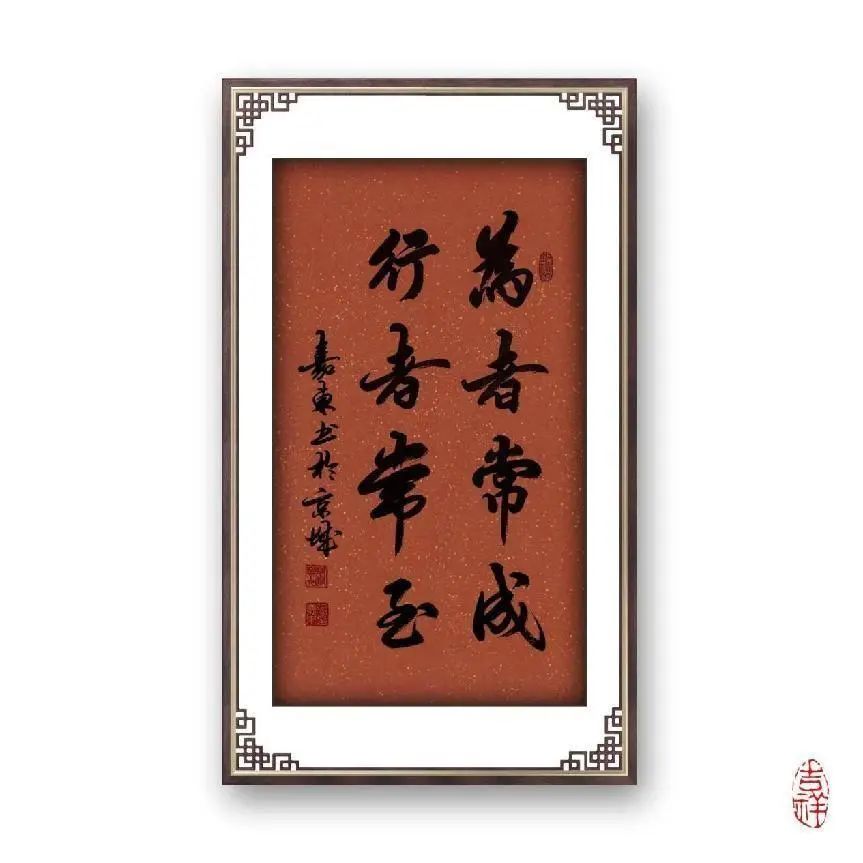 為者常成
行者常至
嘉東书於京城
吉祥